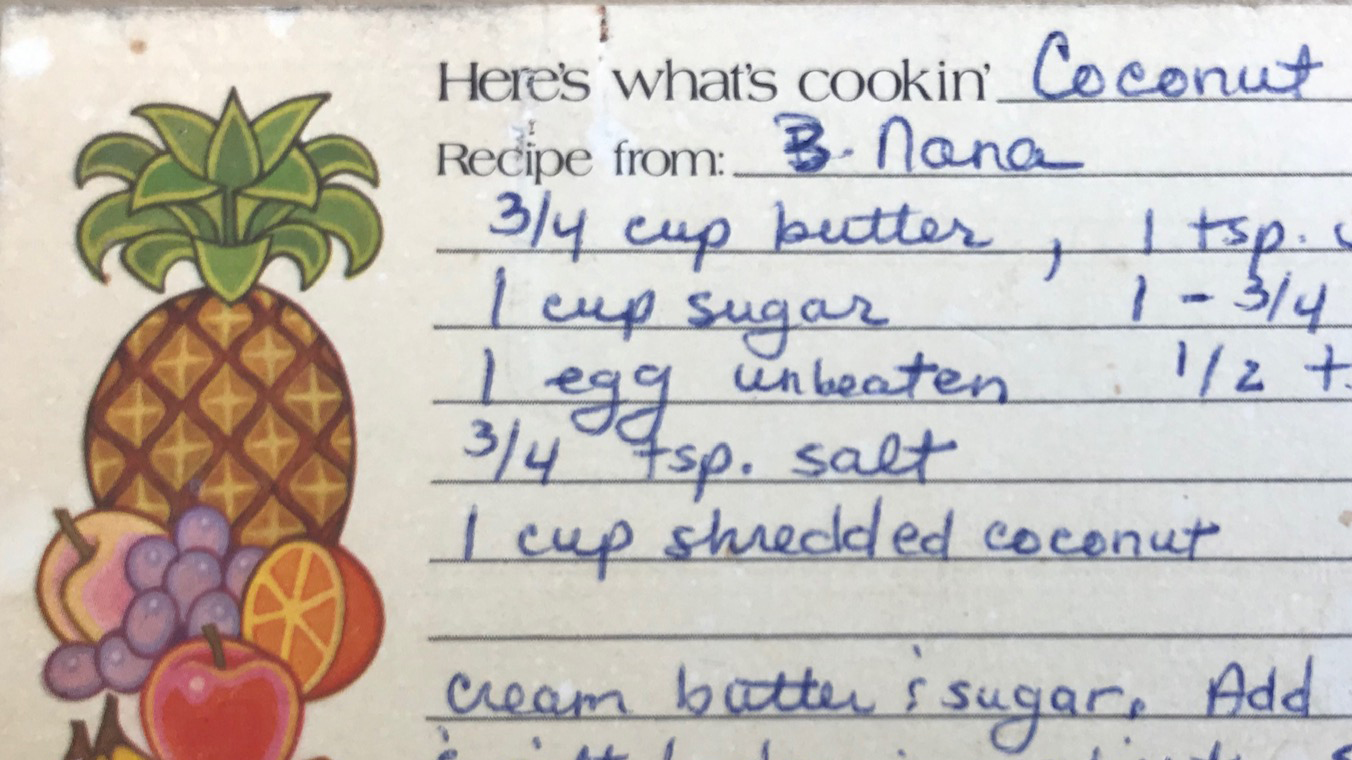 Here's what's cookin' Coconut
Recipe from: B. Nana
3/4 cup butter, 1 tsp.
1 cup sugar 1 - 3/4
1 egg unbeaten 1/2
3/4 tsp. salt
1 cup shredded coconut
cream butter & sugar. Add